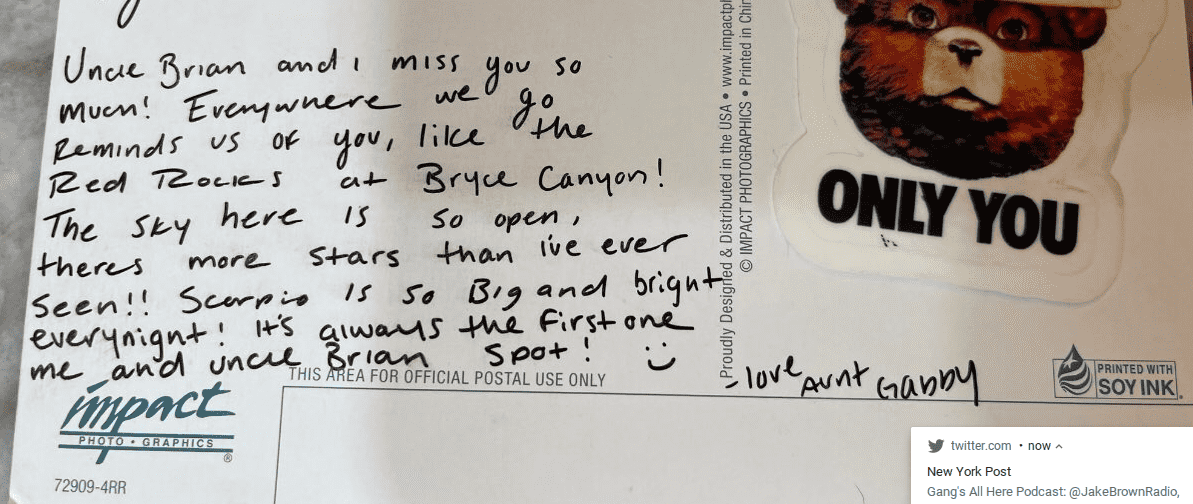 Uncle Brian and i miss you so
much! Everywhere we go
Reminds us of you, like the
Red Rocks at Bryce Canyon!
The sky here is so open,
theres more stars than i've ever
seen!! Scorpio is so Big and bright
everynight! It's always the first one
me and uncle Brian spot! :)
- love Aunt Gabby
THIS AREA FOR OFFICIAL POSTAL USE ONLY
impact
PHOTO • GRAPHICS
®
72909-4RR
Proudly Designed & Distributed in the USA • www.impactph
© IMPACT PHOTOGRAPHICS • Printed in Chin
ONLY YOU
PRINTED WITH
SOY INK.
twitter.com • now
New York Post
Gang's All Here Podcast: @JakeBrownRadio,